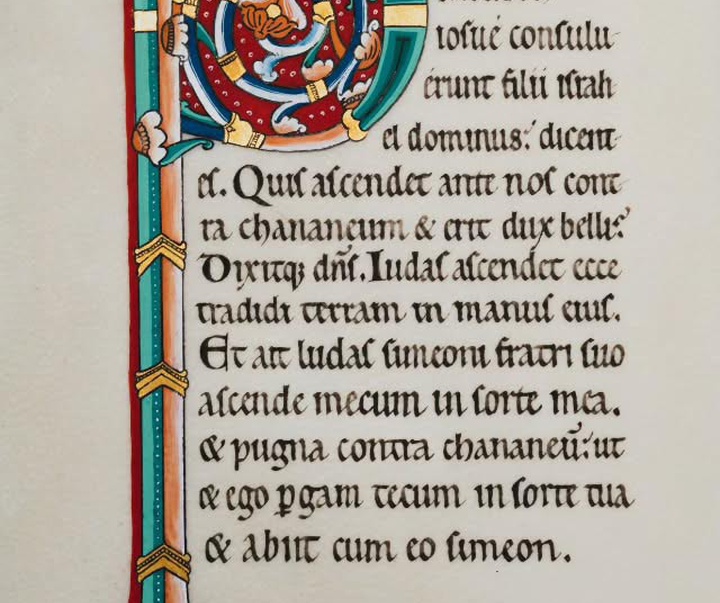 iosue consulu-
erunt filii israh
el dominus: dicent-
es. Quis ascendet ante nos cont
ra chananeum & erit dux belli:
Dixitq; dn̄s. Iudas ascendet ecce
tradidi terram in manus eius.
Et ait Iudas simeoni fratri suo
ascende mecum in sorte mea.
& pugna contra chananeū: ut
& ego ꝑgam tecum in sorte tua
& abiit cum eo simeon.